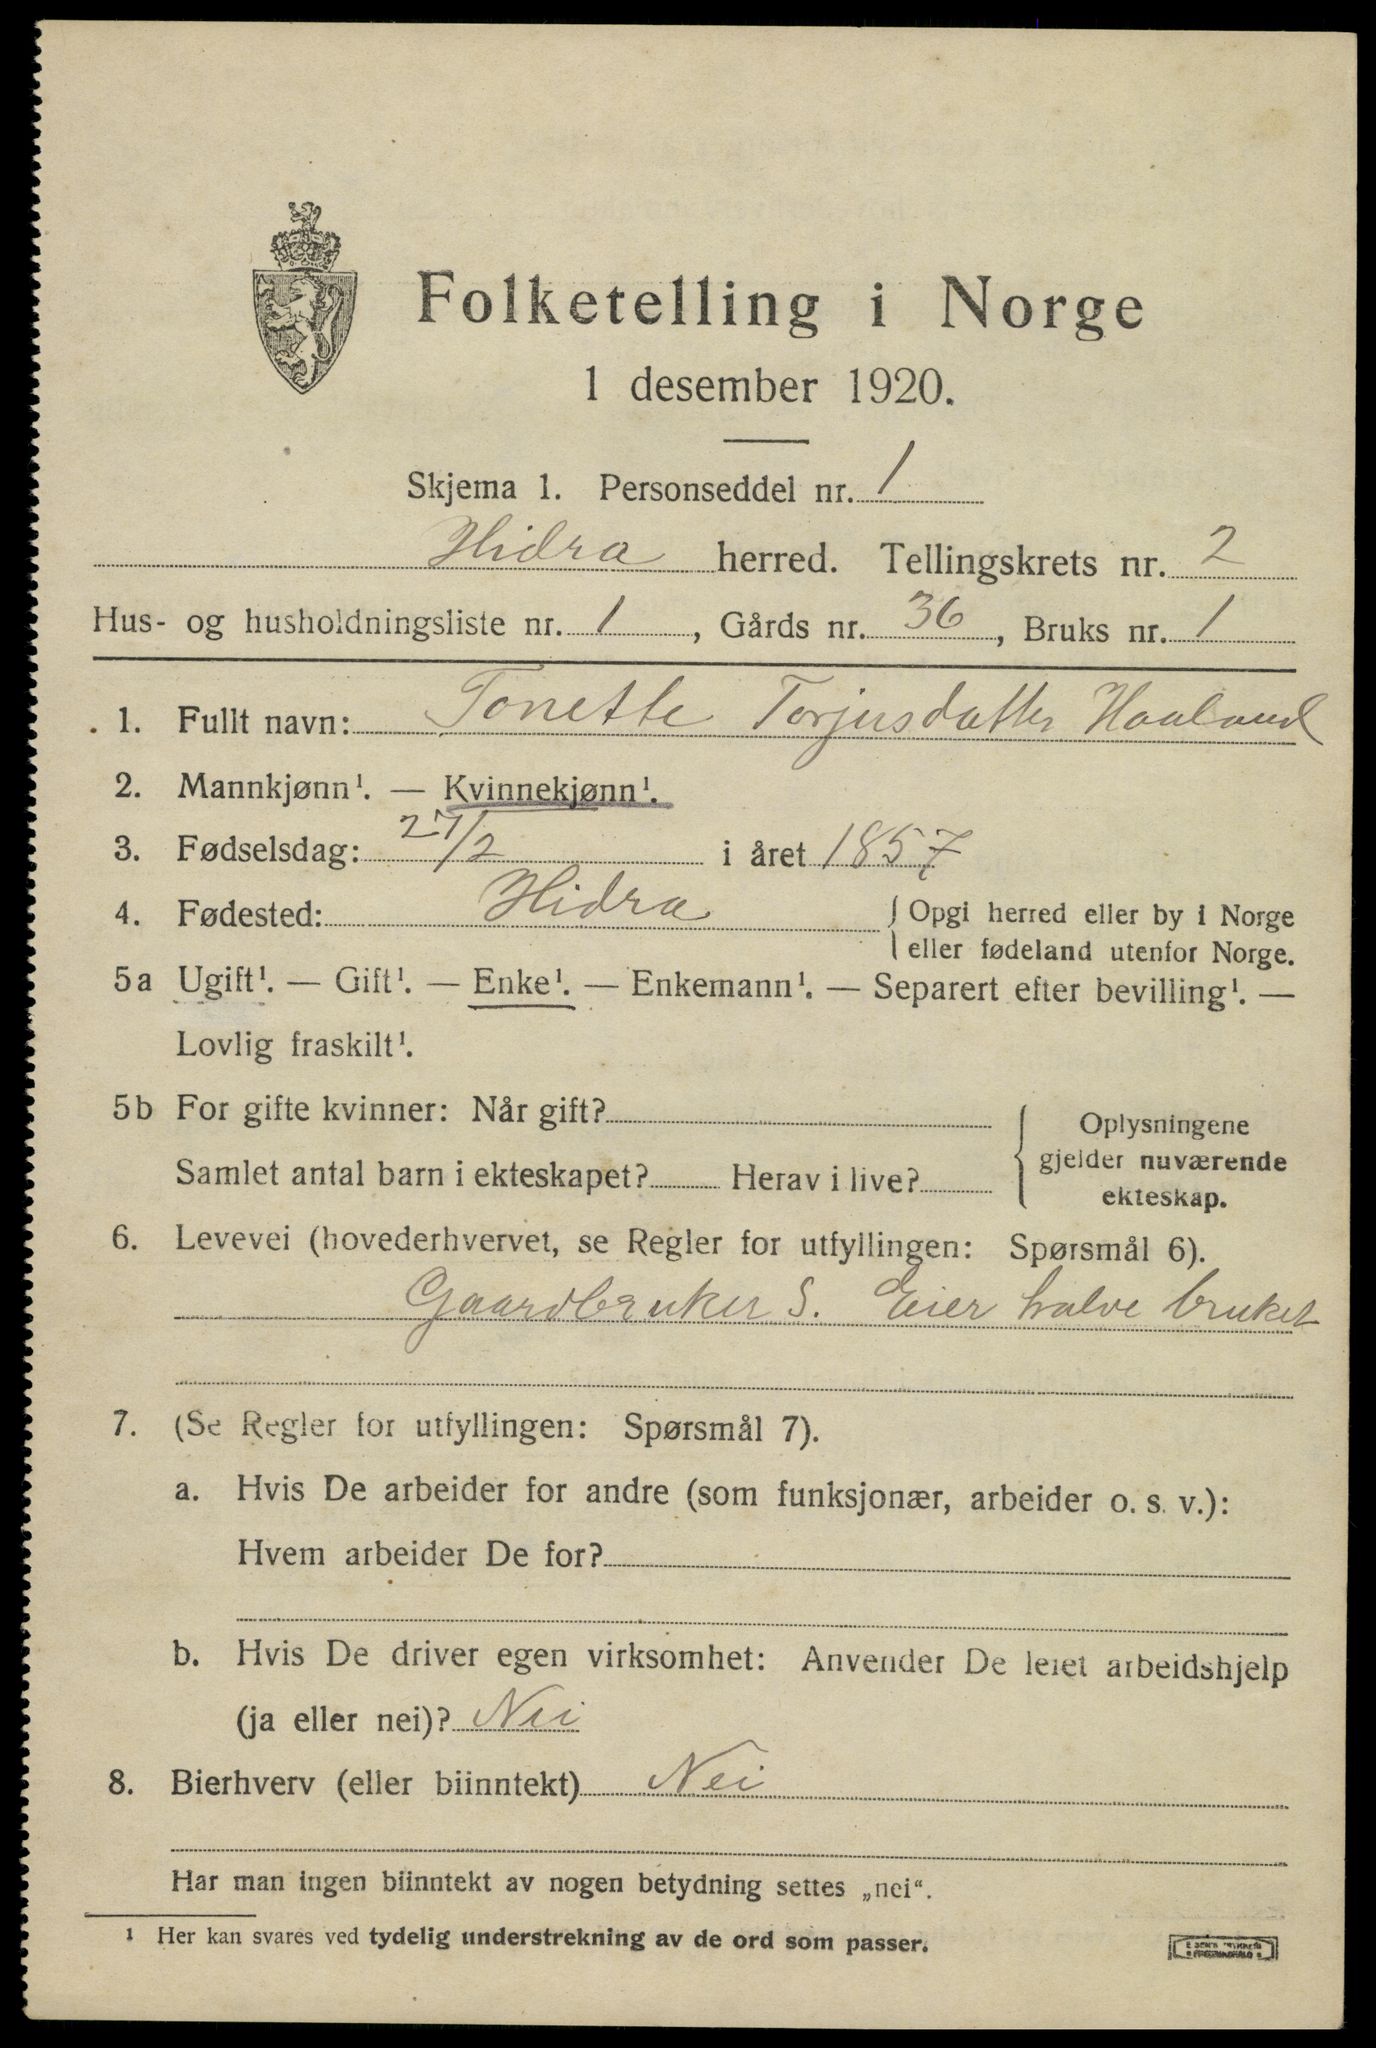 Folketelling i Norge
1 desember 1920.
Skjema 1. Personseddel nr. 1
Hidra herred. Tellingskrets nr. 2
Hus- og husholdningsliste nr. 1, Gårds nr. 36, Bruks nr. 1
1. Fullt navn: Tonette Torjusdatter Haaland
2. Mannkjønn¹. — Kvinnekjønn¹.
3. Fødselsdag: 27/2 i året 1857
4. Fødested: Hidra { Opgi herred eller by i Norge
eller fødeland utenfor Norge.
5a Ugift¹. — Gift¹. — Enke¹. — Enkemann¹. — Separert efter bevilling¹. —
Lovlig fraskilt¹.
5b For gifte kvinner: Når gift?
Samlet antal barn i ekteskapet? Herav i live?
{ Oplysningene
gjelder nuværende
ekteskap.
6. Levevei (hovederhvervet, se Regler for utfyllingen: Spørsmål 6).
Gaardbruker S. Eier halve bruket
7. (Se Regler for utfyllingen: Spørsmål 7).
a. Hvis De arbeider for andre (som funksjonær, arbeider o. s. v.):
Hvem arbeider De for?
b. Hvis De driver egen virksomhet: Anvender De leiet arbeidshjelp
(ja eller nei)? Nei
8. Bierhverv (eller biinntekt) Nei
Har man ingen biinntekt av nogen betydning settes „nei“.
¹ Her kan svares ved tydelig understrekning av de ord som passer.